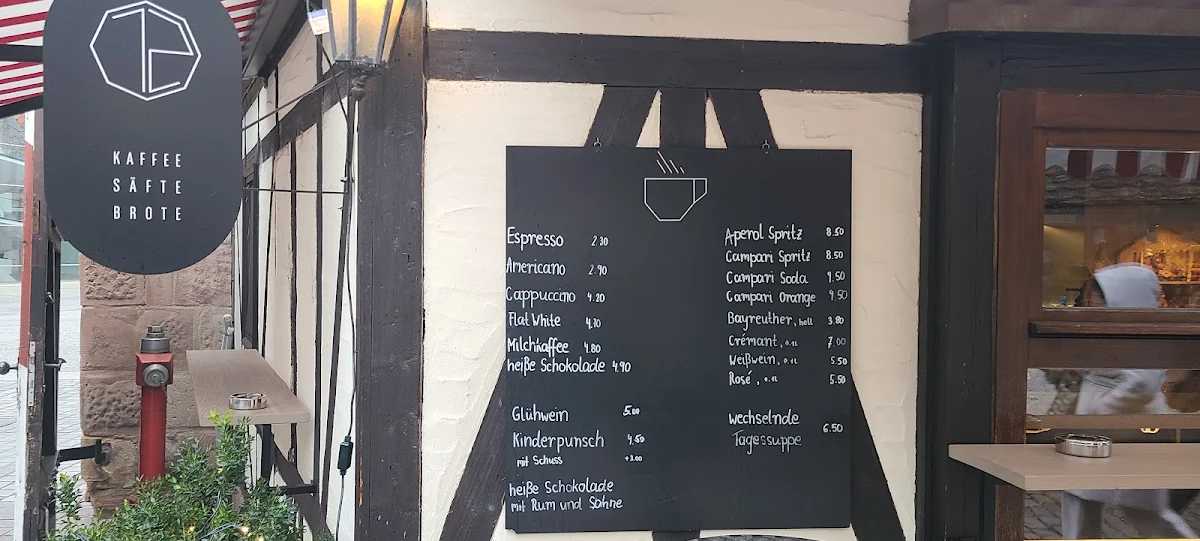 KAFFEE
SÄFTE
BROTE
Espresso 2.30
Americano 2.90
Cappuccino 4.20
Flat White 4.70
Milchkaffee 4.80
heiße Schokolade 4.90
Glühwein 5.00
Kinderpunsch 4.50
mit Schuss +3.00
heiße Schokolade
mit Rum und Sahne
Aperol Spritz 8.50
Campari Spritz 8.50
Campari Soda 9.50
Campari Orange 9.50
Bayreuther, hell 3.80
Crémant, 0.1L 7.00
Weißwein, 0.1L 5.50
Rosé, 0.1L 5.50
wechselnde
Tagessuppe 6.50